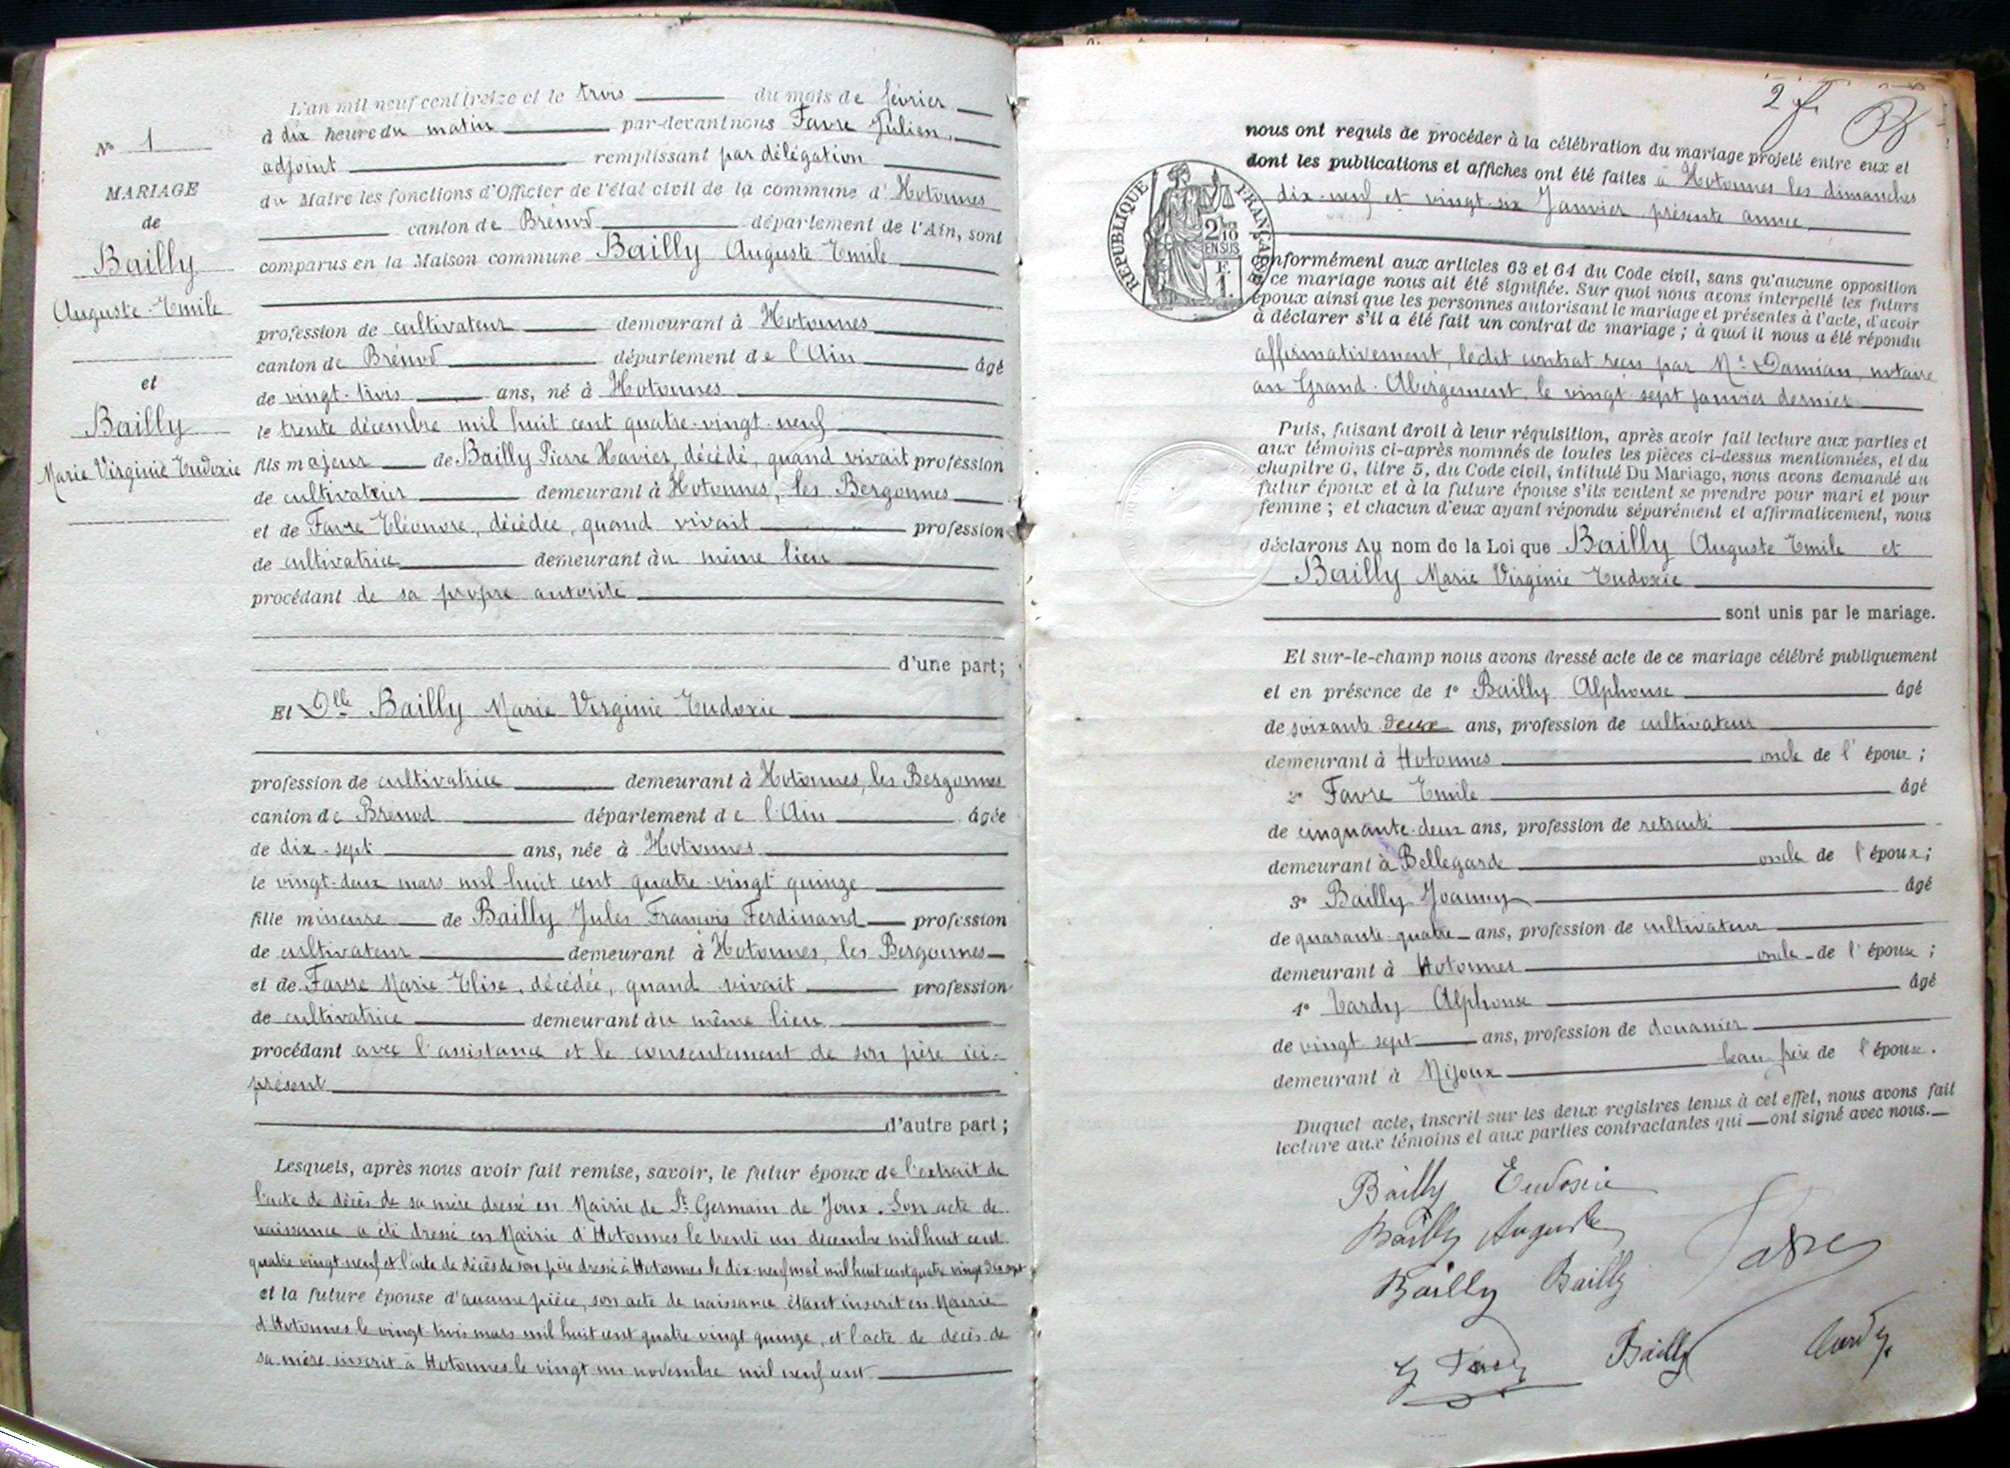 N° 1
MARIAGE
de
Bailly
Auguste-Emile
et
Bailly
Marie Virginie Eudoxie
L'an mil neuf cent treize et le trois du mois de février
à dix heure du matin par-devant nous Favre Julien,
adjoint remplissant par délégation
du Maire les fonctions d'Officier de l'état civil de la commune d'Hotonnes
canton de Brénod département de l'Ain, sont
comparus en la Maison commune Bailly Auguste Emile
profession de cultivateur demeurant à Hotonnes
canton de Brénod département de l'Ain âgé
de vingt-trois ans, né à Hotonnes
le trente décembre mil huit cent quatre-vingt-neuf
fils majeur de Bailly Pierre Xavier, décédé, quand vivait profession
de cultivateur demeurant à Hotonnes, les Bergonnes
et de Favre Eléonore, décédée, quand vivait profession
de cultivatrice demeurant au même lieu
procédant de sa propre autorité
d'une part;
Et Dlle Bailly Marie Virginie Eudoxie
profession de cultivatrice demeurant à Hotonnes, les Bergonnes
canton de Brénod département de l'Ain âgée
de dix-sept ans, née à Hotonnes
le vingt-deux mars mil huit cent quatre-vingt quinze
fille mineure de Bailly Jules François Ferdinand profession
de cultivateur demeurant à Hotonnes, les Bergonnes
et de Favre Marie Elise, décédée, quand vivait profession
de cultivatrice demeurant au même lieu
procédant avec l'assistance et le consentement de son père ici-
présent
d'autre part;
Lesquels, après nous avoir fait remise, savoir, le futur époux de l'extrait de
l'acte de décès de sa mère dressé en Mairie de St Germain de Joux. Son acte de
naissance a été dressé en Mairie d'Hotonnes le trente un décembre mil huit cent
quatre vingt neuf et l'acte de décès de son père dressé à Hotonnes le dix-neuf mai mil huit cent quatre vingt dix sept
et la future épouse d'aucune pièce, son acte de naissance étant inscrit en Mairie
d'Hotonnes le vingt trois mars mil huit cent quatre vingt quinze, et l'acte de décès de
sa mère inscrit à Hotonnes le vingt un novembre mil neuf cent
2 f.
nous ont requis de procéder à la célébration du mariage projeté entre eux et
dont les publications et affiches ont été faites à Hotonnes les dimanches
dix-neuf et vingt-six Janvier présente année
RÉPUBLIQUE FRANÇAISE
2/10
EN SUS
F.
1.
conformément aux articles 63 et 64 du Code civil, sans qu'aucune opposition
à ce mariage nous ait été signifiée. Sur quoi nous avons interpellé les futurs
époux ainsi que les personnes autorisant le mariage et présentes à l'acte, d'avoir
à déclarer s'il a été fait un contrat de mariage ; à quoi il nous a été répondu
affirmativement, ledit contrat reçu par Me Damian, notaire
au Grand-Abergement, le vingt-sept janvier dernier
Puis, faisant droit à leur réquisition, après avoir fait lecture aux parties et
aux témoins ci-après nommés de toutes les pièces ci-dessus mentionnées, et du
chapitre 6, titre 5, du Code civil, intitulé Du Mariage, nous avons demandé au
futur époux et à la future épouse s'ils veulent se prendre pour mari et pour
femme ; et chacun d'eux ayant répondu séparément et affirmativement, nous
déclarons Au nom de la Loi que Bailly Auguste Emile et
Bailly Marie Virginie Eudoxie
sont unis par le mariage.
Et sur-le-champ nous avons dressé acte de ce mariage célébré publiquement
et en présence de 1° Bailly Alphonse âgé
de soixante deux ans, profession de cultivateur
demeurant à Hotonnes oncle de l'époux ;
2° Favre Emile âgé
de cinquante-deux ans, profession de retraité
demeurant à Bellegarde oncle de l'époux ;
3° Bailly Joanny âgé
de quarante-quatre ans, profession de cultivateur
demeurant à Hotonnes oncle de l'époux ;
4° Tardy Alphonse âgé
de vingt sept ans, profession de douanier
demeurant à Mijoux beau-frère de l'époux.
Duquel acte, inscrit sur les deux registres tenus à cet effet, nous avons fait
lecture aux témoins et aux parties contractantes qui ont signé avec nous.
Bailly Eudoxie
Bailly Auguste
Favre
Bailly Bailly
Bailly Tardy